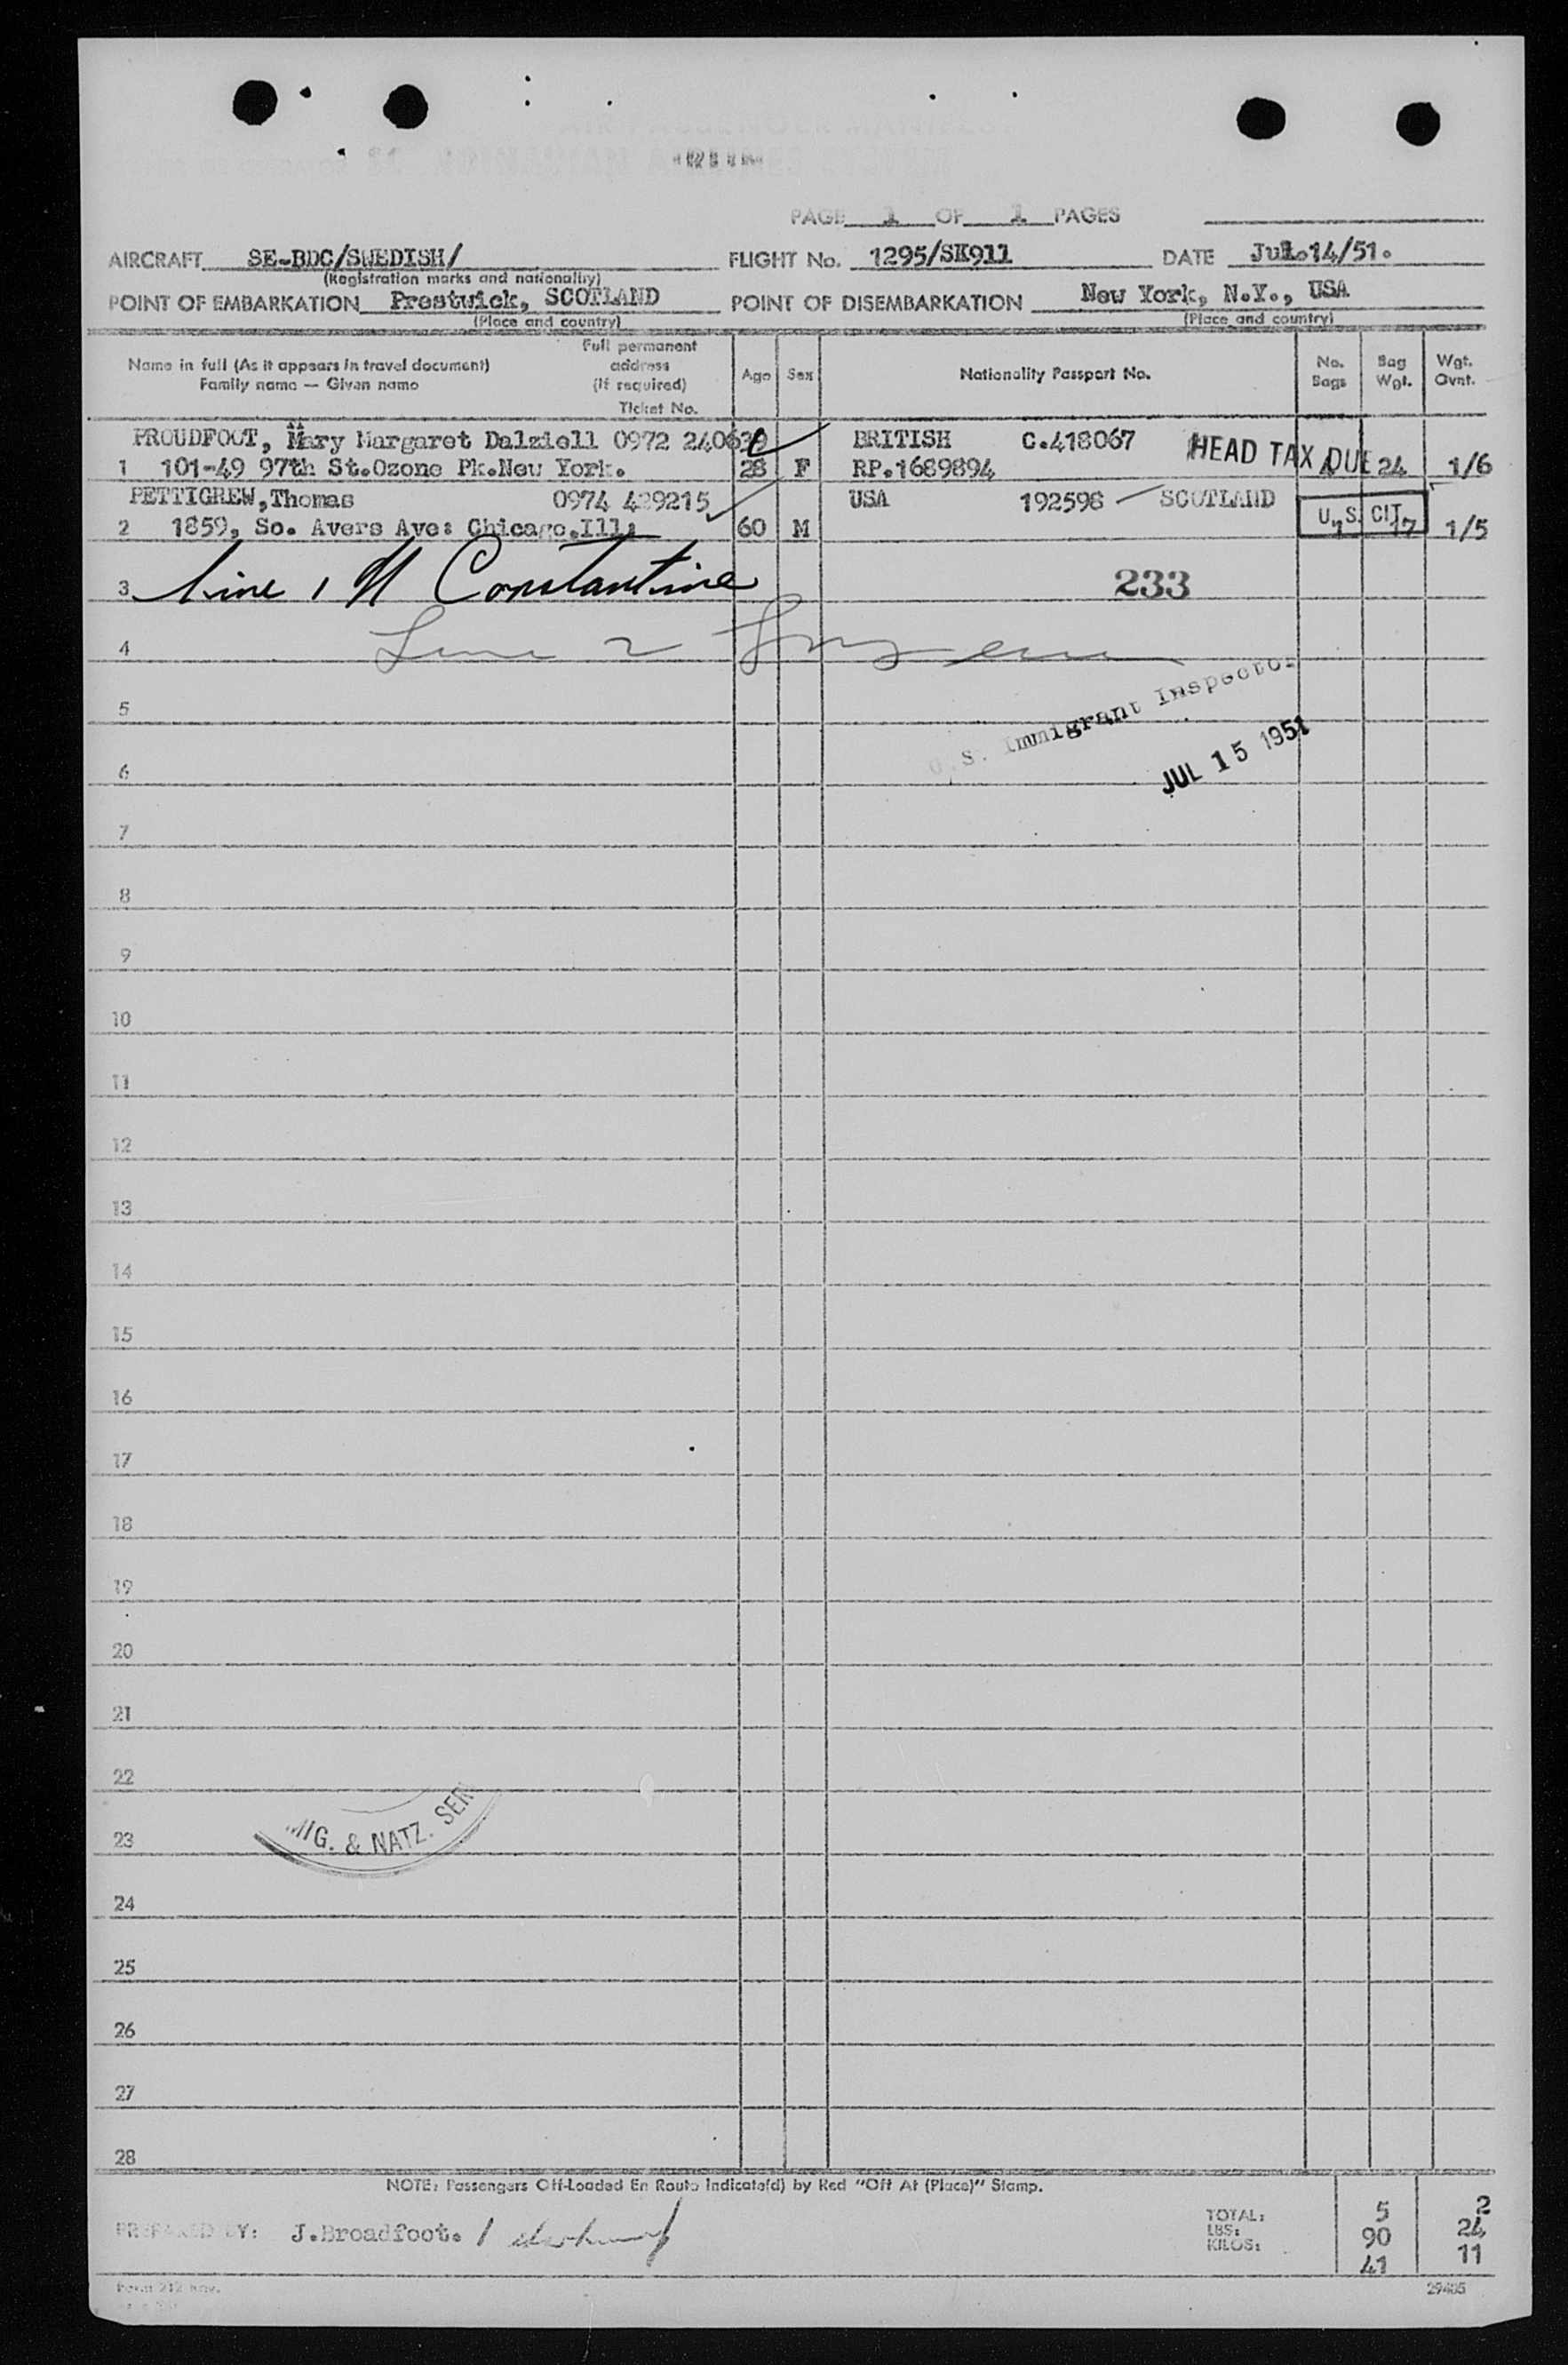 PAGE 1 OF 1 PAGES
AIRCRAFT SE-BDC/SWEDISH/ FLIGHT No. 1295/SK911 DATE Jul.14/51.
(Registration marks and nationality)
POINT OF EMBARKATION Prestwick, SCOTLAND POINT OF DISEMBARKATION New York, N.Y., USA
(Place and country) (Place and country)
Name in full (As it appears in travel document)
Family name — Given name
Full permanent
address
(If required)
Ticket No.
Age Sex Nationality Passport No. No.
Bags Bag
Wgt. Wgt.
Ovnt.
PROUDFOOT, Mary Margaret Dalziell 0972 240639 BRITISH C.418067 HEAD TAX DUE
1 101-49 97th St.Ozone Pk.New York. 28 F RP.1689894 24 1/6
PETTIGREW,Thomas 0974 429215 USA 192598 SCOTLAND
2 1859, So. Avers Ave: Chicago.Ill: 60 M U.S. CIT. 17 1/5
3 Line 1 M Constantine 233
4 Line 2
5 U.S. Immigrant Inspector
6 JUL 15 1951
7
8
9
10
11
12
13
14
15
16
17
18
19
20
21
22
23 MIG. & NATZ. SER
24
25
26
27
28
NOTE: Passengers Off-Loaded En Route Indicate(d) by Red "Off At (Place)" Stamp.
PREPARED BY: J.Broadfoot. /
TOTAL: 5 2
LBS: 90 24
KILOS: 41 11
Form 212 Rev.
29405